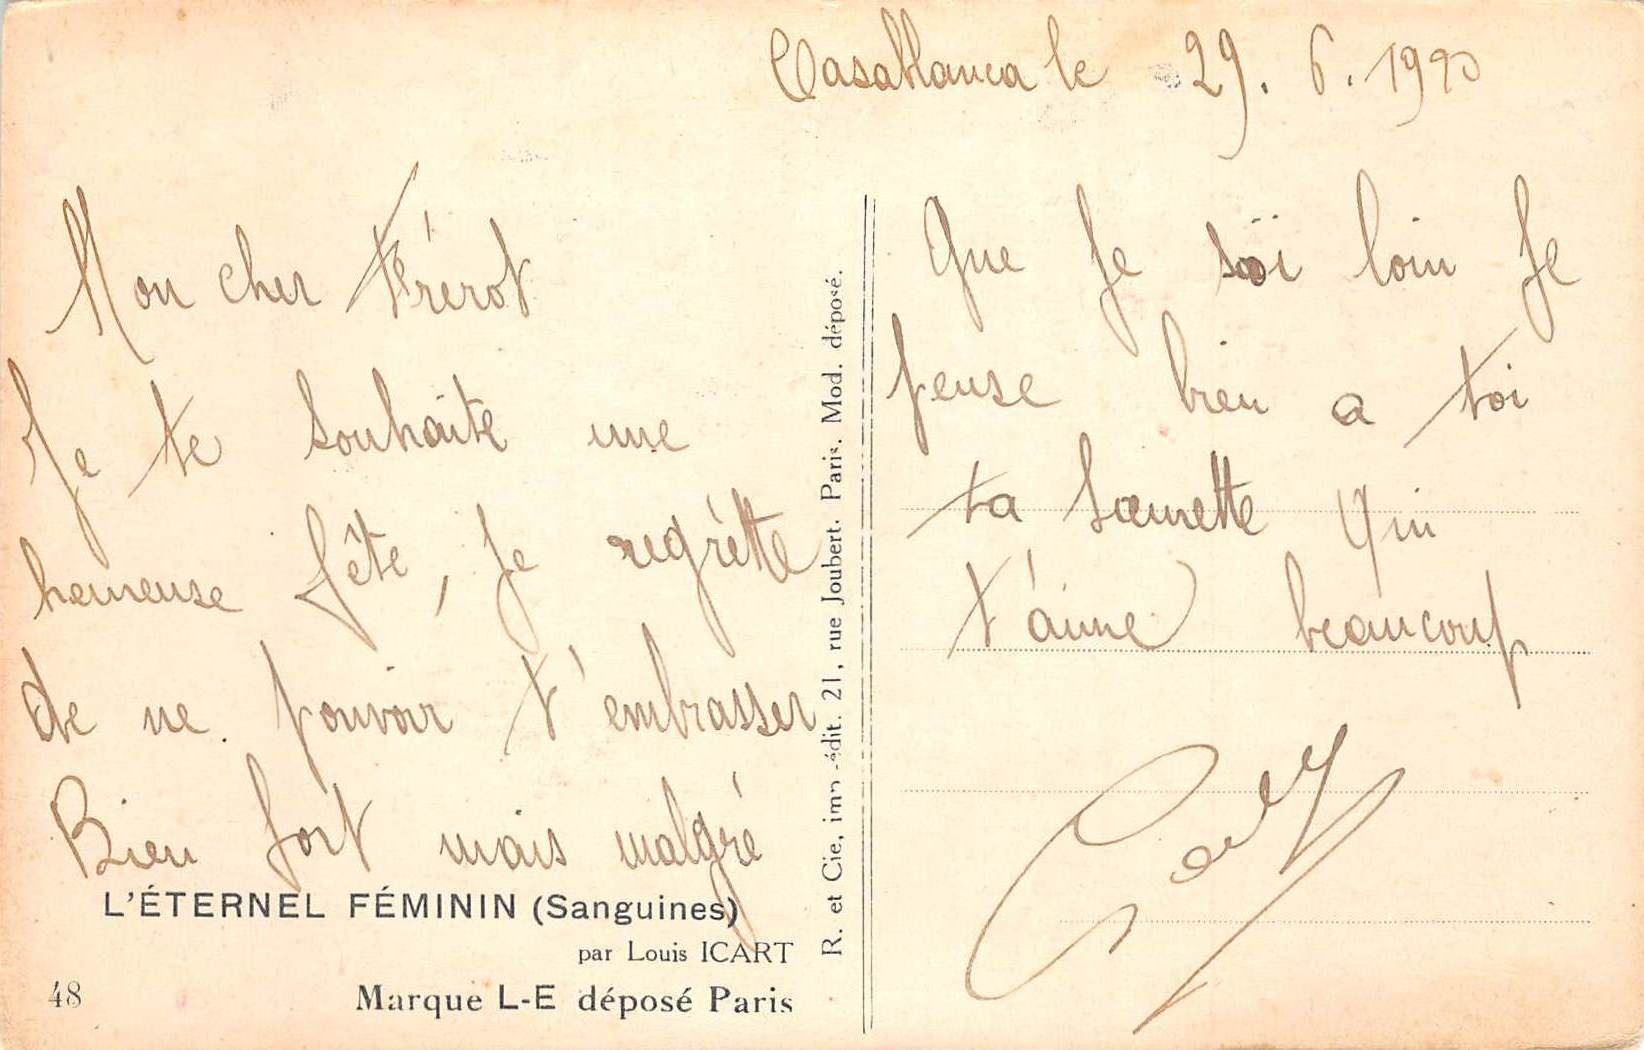 Casablanca le 29. 6. 19
Mon cher Frérot
Je te souhaite une
heureuse fête, je regrètte
de ne pouvoir t'embrasser
Bien fort mais malgré
Que je soï loin Je
pense bien a toi
ta sœurette qui
t'aime beaucoup
R. et Cie, imp.-édit. 21, rue Joubert. Paris. Mod. déposé.
L'ÉTERNEL FÉMININ (Sanguines)
par Louis ICART
48
Marque L-E déposé Paris